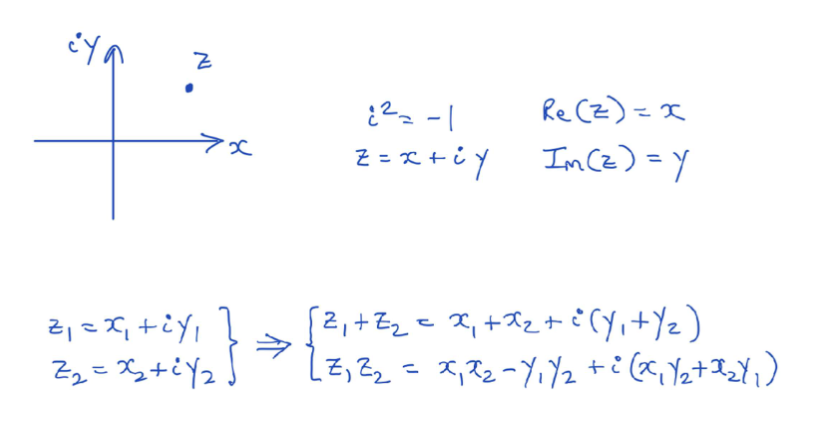 iy
z
x
i² = -1
Re(z) = x
z = x + iy
Im(z) = y
z₁ = x₁ + iy₁
z₂ = x₂ + iy₂
} ⇒ {
z₁ + z₂ = x₁ + x₂ + i(y₁ + y₂)
z₁z₂ = x₁x₂ - y₁y₂ + i(x₁y₂ + x₂y₁)